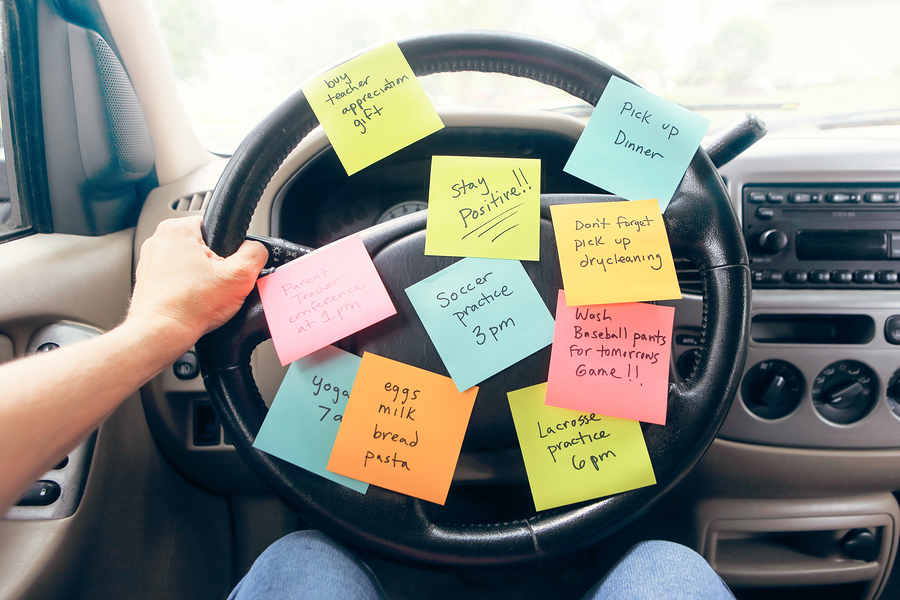 buy
teacher
appreciation
gift
Pick up
Dinner
Stay
Positive!!
Don't forget
pick up
drycleaning
Parent
Teacher
conference
at 1pm
Soccer
practice
3pm
Wash
Baseball pants
For tomorrows
Game!!
Yoga
7a
eggs
milk
bread
pasta
Lacrosse
practice
6pm